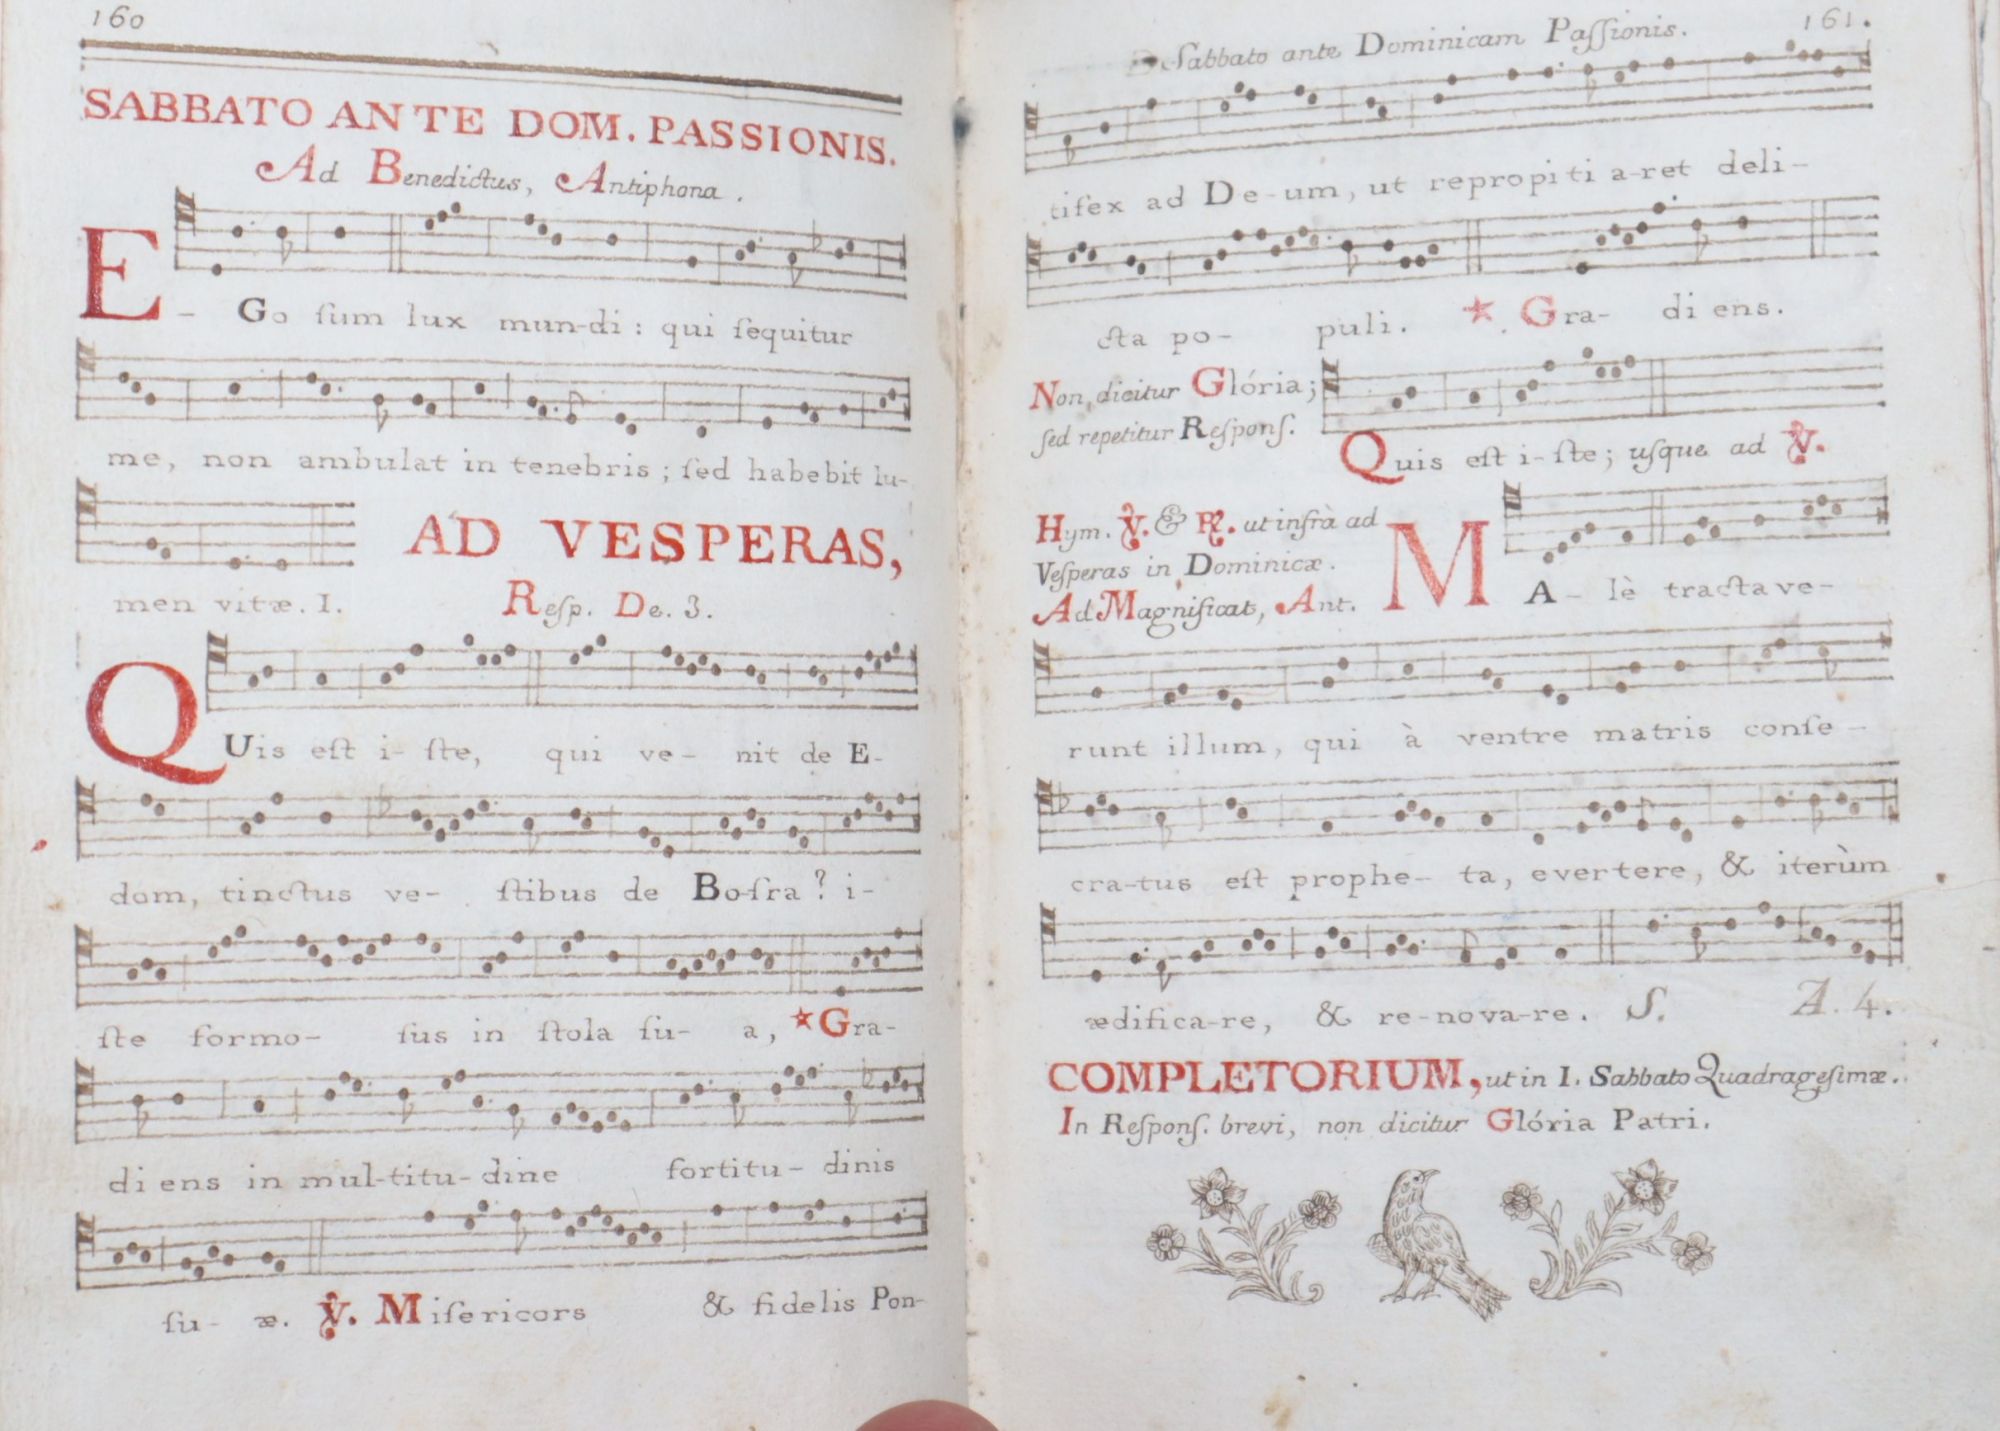 160
SABBATO ANTE DOM. PASSIONIS.
Ad Benedictus, Antiphona.
E - Go ſum lux mun-di : qui ſequitur
me, non ambulat in tenebris ; ſed habebit lu-
men vitæ. I.
AD VESPERAS,
Reſp. De. 3.
QUis eſt i- ſte, qui ve- nit de E-
dom, tinctus ve- ſtibus de Bo-ſra ? i-
ſte formo- ſus in ſtola ſu- a, * Gra-
di ens in mul-titu-dine fortitu- dinis
ſu- æ. ℣. Miſericors & fidelis Pon-
Sabbato ante Dominicam Paſſionis. 161.
tifex ad De-um, ut repropiti a-ret deli-
cta po- puli. * Gra- di ens.
Non dicitur Glória;
ſed repetitur Reſponſ.
Quis eſt i-ſte; uſque ad ℣.
Hym. ℣. & ℟. ut infrà ad
Veſperas in Dominicæ.
Ad Magnificat, Ant.
MA- lè tracta ve-
runt illum, qui à ventre matris conſe-
cra-tus eſt prophe- ta, evertere, & iterùm
ædifica-re, & re-nova-re. S. A. 4.
COMPLETORIUM, ut in I. Sabbato Quadrageſimæ.
In Reſponſ. brevi, non dicitur Glória Patri.